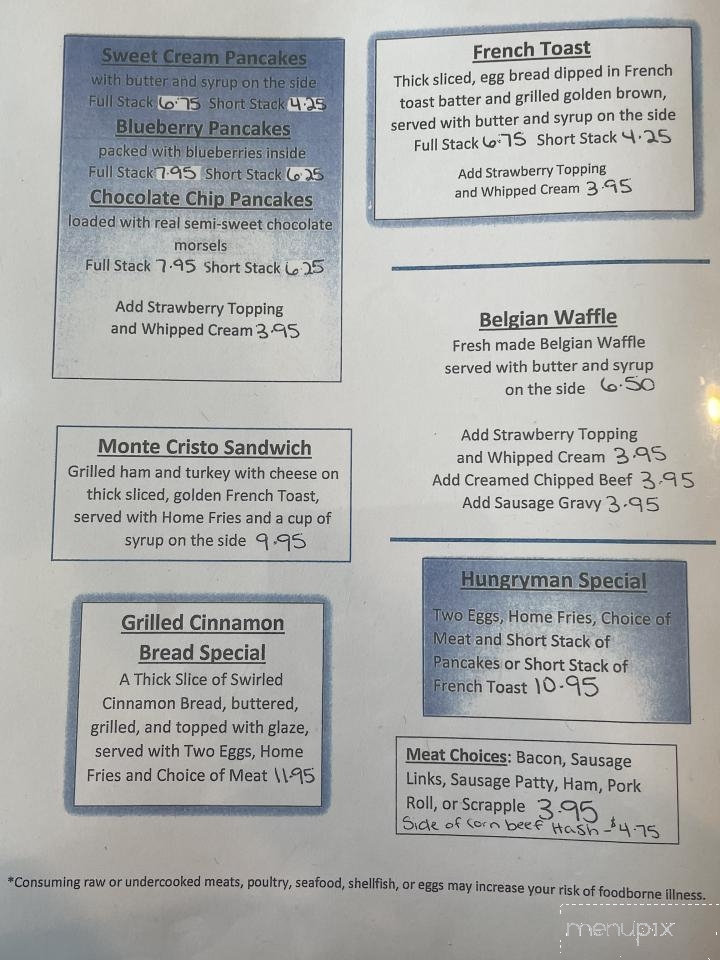 Sweet Cream Pancakes
with butter and syrup on the side
Full Stack 6.75 Short Stack 4.25
Blueberry Pancakes
packed with blueberries inside
Full Stack 7.95 Short Stack 6.25
Chocolate Chip Pancakes
loaded with real semi-sweet chocolate
morsels
Full Stack 7.95 Short Stack 6.25
Add Strawberry Topping
and Whipped Cream 3.95
French Toast
Thick sliced, egg bread dipped in French
toast batter and grilled golden brown,
served with butter and syrup on the side
Full Stack 6.75 Short Stack 4.25
Add Strawberry Topping
and Whipped Cream 3.95
Belgian Waffle
Fresh made Belgian Waffle
served with butter and syrup
on the side 6.50
Add Strawberry Topping
and Whipped Cream 3.95
Add Creamed Chipped Beef 3.95
Add Sausage Gravy 3.95
Monte Cristo Sandwich
Grilled ham and turkey with cheese on
thick sliced, golden French Toast,
served with Home Fries and a cup of
syrup on the side 9.95
Hungryman Special
Two Eggs, Home Fries, Choice of
Meat and Short Stack of
Pancakes or Short Stack of
French Toast 10.95
Grilled Cinnamon
Bread Special
A Thick Slice of Swirled
Cinnamon Bread, buttered,
grilled, and topped with glaze,
served with Two Eggs, Home
Fries and Choice of Meat 11.95
Meat Choices: Bacon, Sausage
Links, Sausage Patty, Ham, Pork
Roll, or Scrapple 3.95
Side of corn beef Hash - $4.75
*Consuming raw or undercooked meats, poultry, seafood, shellfish, or eggs may increase your risk of foodborne illness.
menupix